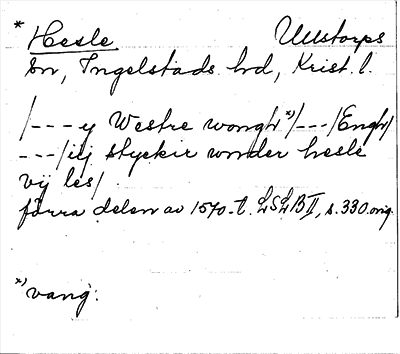 * Hesle Ullstorps
sn, Ingelstads hd, Krist. l.
/--- y Westre wongh *)/---/Engh/
---/iij styckir wnder hesle
vij les/
förra delen av 1570-t. LSLB II, s. 330. orig.
*) vang.